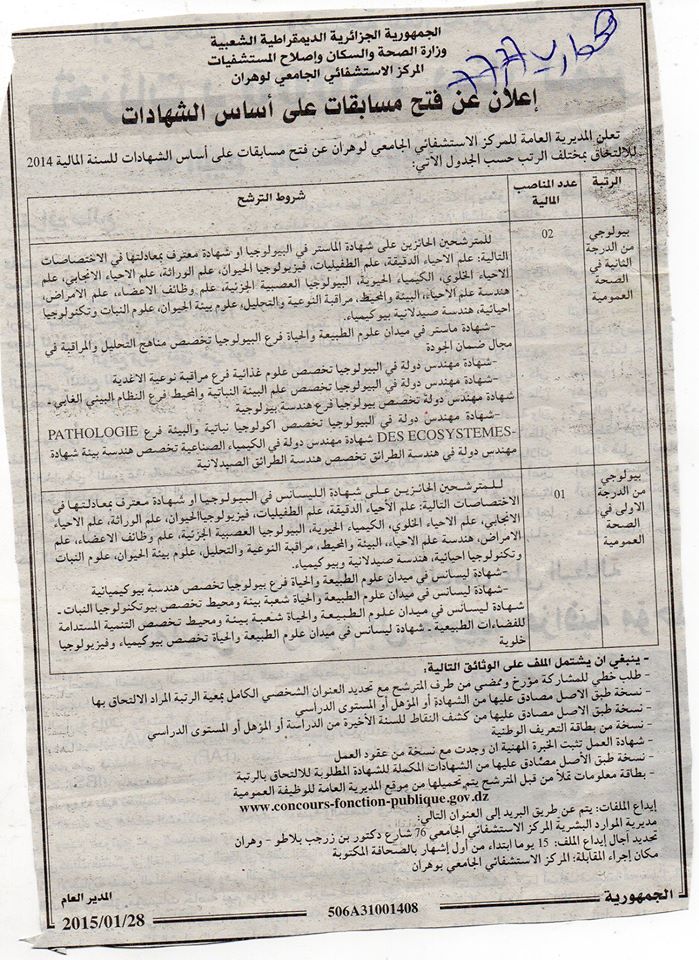 الجمهورية الجزائرية الديمقراطية الشعبية
وزارة الصحة والسكان وإصلاح المستشفيات
المركز الاستشفائي الجامعي لوهران
إعلان عن فتح مسابقات على أساس الشهادات
تعلن المديرية العامة للمركز الاستشفائي الجامعي لوهران عن فتح مسابقات على أساس الشهادات للسنة المالية 2014
للالتحاق بمختلف الرتب حسب الجدول الآتي:
الرتبة
عدد المناصب المالية
شروط الترشح
بيولوجي من الدرجة الثانية في الصحة العمومية
02
للمترشحين الحائزين على شهادة الماستر في البيولوجيا او شهادة معترف بمعادلتها في الاختصاصات
التالية: علم الاحياء الدقيقة، علم الطفيليات، فيزيولوجيا الحيوان، علم الوراثة، علم الاحياء الانجابي، علم
الاحياء الخلوي، الكيمياء الحيوية، البيولوجيا العصبية الجزئية، علم وظائف الاعضاء، علم الامراض،
هندسة علم الاحياء، البيئة والمحيط، مراقبة النوعية والتحليل، علوم بيئة الحيوان، علوم النبات وتكنولوجيا
احيائية، هندسة صيدلانية بيوكيمياء.
-شهادة ماستر في ميدان علوم الطبيعة والحياة فرع البيولوجيا تخصص مناهج التحليل والمراقبة في
مجال ضمان الجودة
-شهادة مهندس دولة في البيولوجيا تخصص علوم غذائية فرع مراقبة نوعية الاغدية
-شهادة مهندس دولة في البيولوجيا تخصص علم البيئة النباتية والمحيط فرع النظام البيئي الغابي-
شهادة مهندس دولة تخصص بيولوجيا فرع هندسة بيولوجية
-شهادة مهندس دولة في البيولوجيا تخصص اكولوجيا نباتية والبيئة فرع PATHOLOGIE
DES ECOSYSTEMES- شهادة مهندس دولة في الكيمياء الصناعية تخصص هندسة بيئة شهادة
مهندس دولة في هندسة الطرائق تخصص هندسة الطرائق الصيدلانية
بيولوجي من الدرجة الاولى في الصحة العمومية
01
للمترشحين الحائزين على شهادة الليسانس في البيولوجيا او شهادة معترف بمعادلتها في
الاختصاصات التالية: علم الأحياء الدقيقة، علم الطفيليات، فيزيولوجياالحيوان، علم الوراثة، علم الاحياء
الانجابي، علم الاحياء الخلوي، الكيمياء الحيوية، البيولوجيا العصبية الجزئية، علم وظائف الاعضاء، علم
الامراض، هندسة علم الاحياء، البيئة والمحيط، مراقبة النوعية والتحليل، علوم بيئة الحيوان، علوم النبات
وتكنولوجيا احيائية، هندسة صيدلانية وبيوكيمياء.
-شهادة ليسانس في ميدان علوم الطبيعة والحياة فرع بيولوجيا تخصص هندسة بيوكيميائية
-شهادة ليسانس في ميدان علوم الطبيعة والحياة شعبة بيئة ومحيط تخصص بيوتكنولوجيا النبات-
شهادة ليسانس في ميدان علوم الطبيعة والحياة شعبة بيئة ومحيط تخصص التنمية المستدامة
للفضاءات الطبيعية- شهادة ليسانس في ميدان علوم الطبيعة والحياة تخصص بيوكيمياء وفيزيولوجيا
خلوية
- ينبغي ان يشتمل الملف على الوثائق التالية:
- طلب خطي للمشاركة مؤرخ وممضي من طرف المترشح مع تحديد العنوان الشخصي الكامل بمعية الرتبة المراد الالتحاق بها
- نسخة طبق الاصل مصادق عليها من الشهادة أو المؤهل أو المستوى الدراسي
- نسخة طبق الاصل مصادق عليها من كشف النقاط للسنة الأخيرة من الدراسة أو المؤهل أو المستوى الدراسي
- نسخة من بطاقة التعريف الوطنية
- شهادة العمل تثبت الخبرة المهنية ان وجدت مع نسخة من عقود العمل
- نسخة طبق الأصل مصادق عليها من الشهادات المكملة للشهادة المطلوبة للالتحاق بالرتبة
- بطاقة معلومات تملأ من قبل المترشح يتم تحميلها من موقع المديرية العامة للوظيفة العمومية
www.concours-fonction-publique.gov.dz
إيداع الملفات: يتم عن طريق البريد إلى العنوان التالي:
مديرية الموارد البشرية المركز الاستشفائي الجامعي 76 شارع دكتور بن زرجب بلاطو - وهران
تحديد أجال إيداع الملف: 15 يوما ابتداء من أول إشهار بالصحافة المكتوبة
مكان إجراء المقابلة: المركز الاستشفائي الجامعي بوهران
المدير العام
الجمهورية
506A31001408
2015/01/28